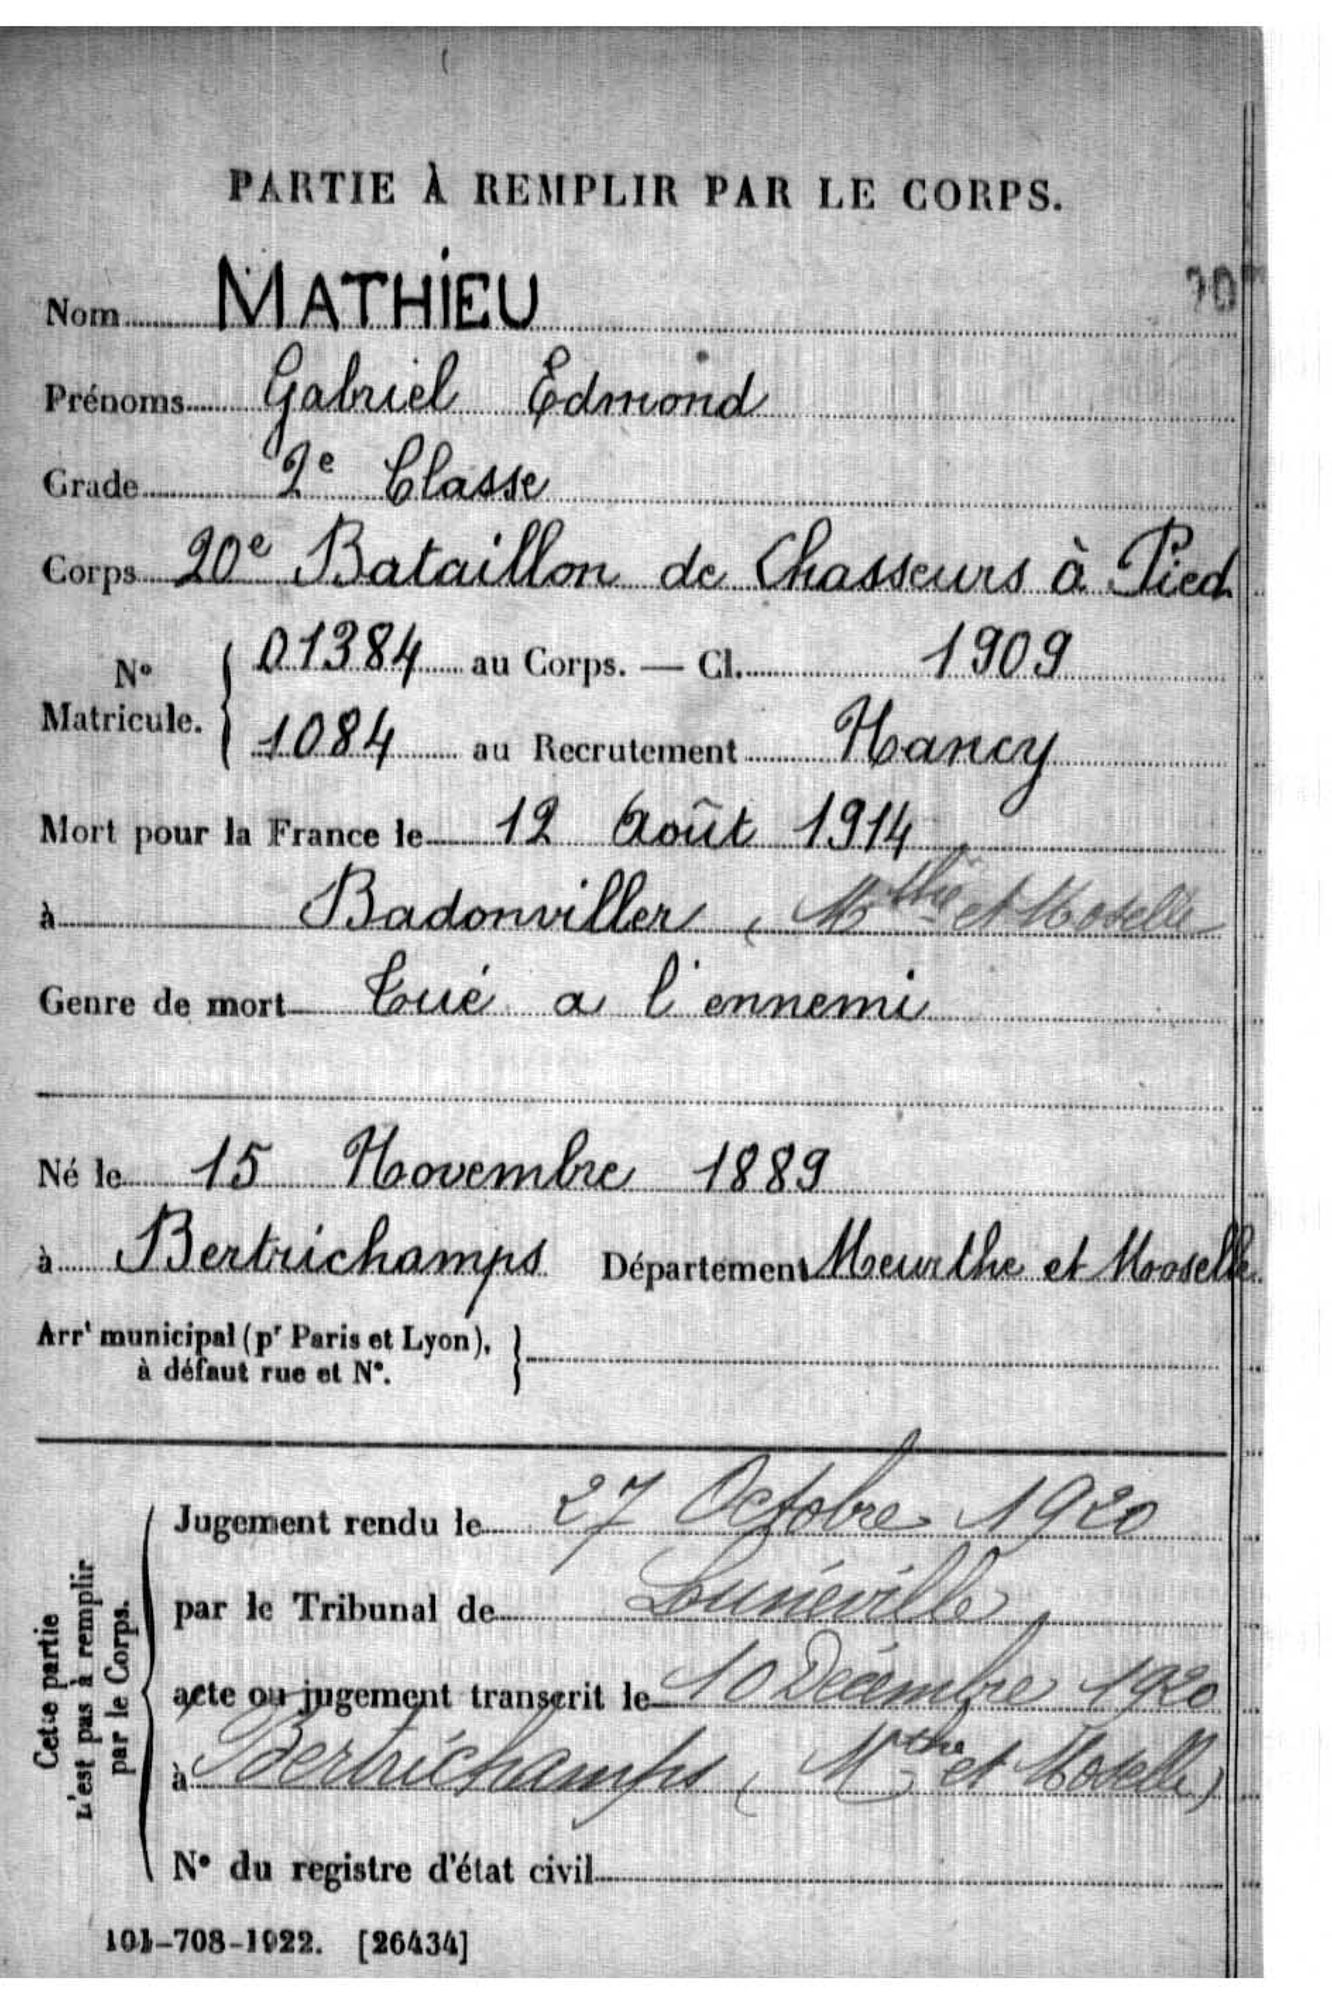 PARTIE À REMPLIR PAR LE CORPS.
Nom MATHIEU
Prénoms Gabriel Edmond
Grade 2e Classe
Corps 20e Bataillon de Chasseurs à Pied
No Matricule. { 01384 au Corps. — Cl. 1909
1084 au Recrutement Nancy
Mort pour la France le 12 Août 1914
à Badonviller ( Mthe et Moselle
Genre de mort Tué a l'ennemi
Né le 15 Novembre 1889
à Bertrichamps Département Meurthe et Moselle
Arrt municipal (pr Paris et Lyon),
à défaut rue et No.
Cette partie
n'est pas à remplir
par le Corps.
Jugement rendu le 27 Octobre 1920
par le Tribunal de Lunéville
acte ou jugement transcrit le 10 Décembre 1920
à Bertrichamps ( Mthe et Moselle)
No du registre d'état civil
101-708-1922. [26434]